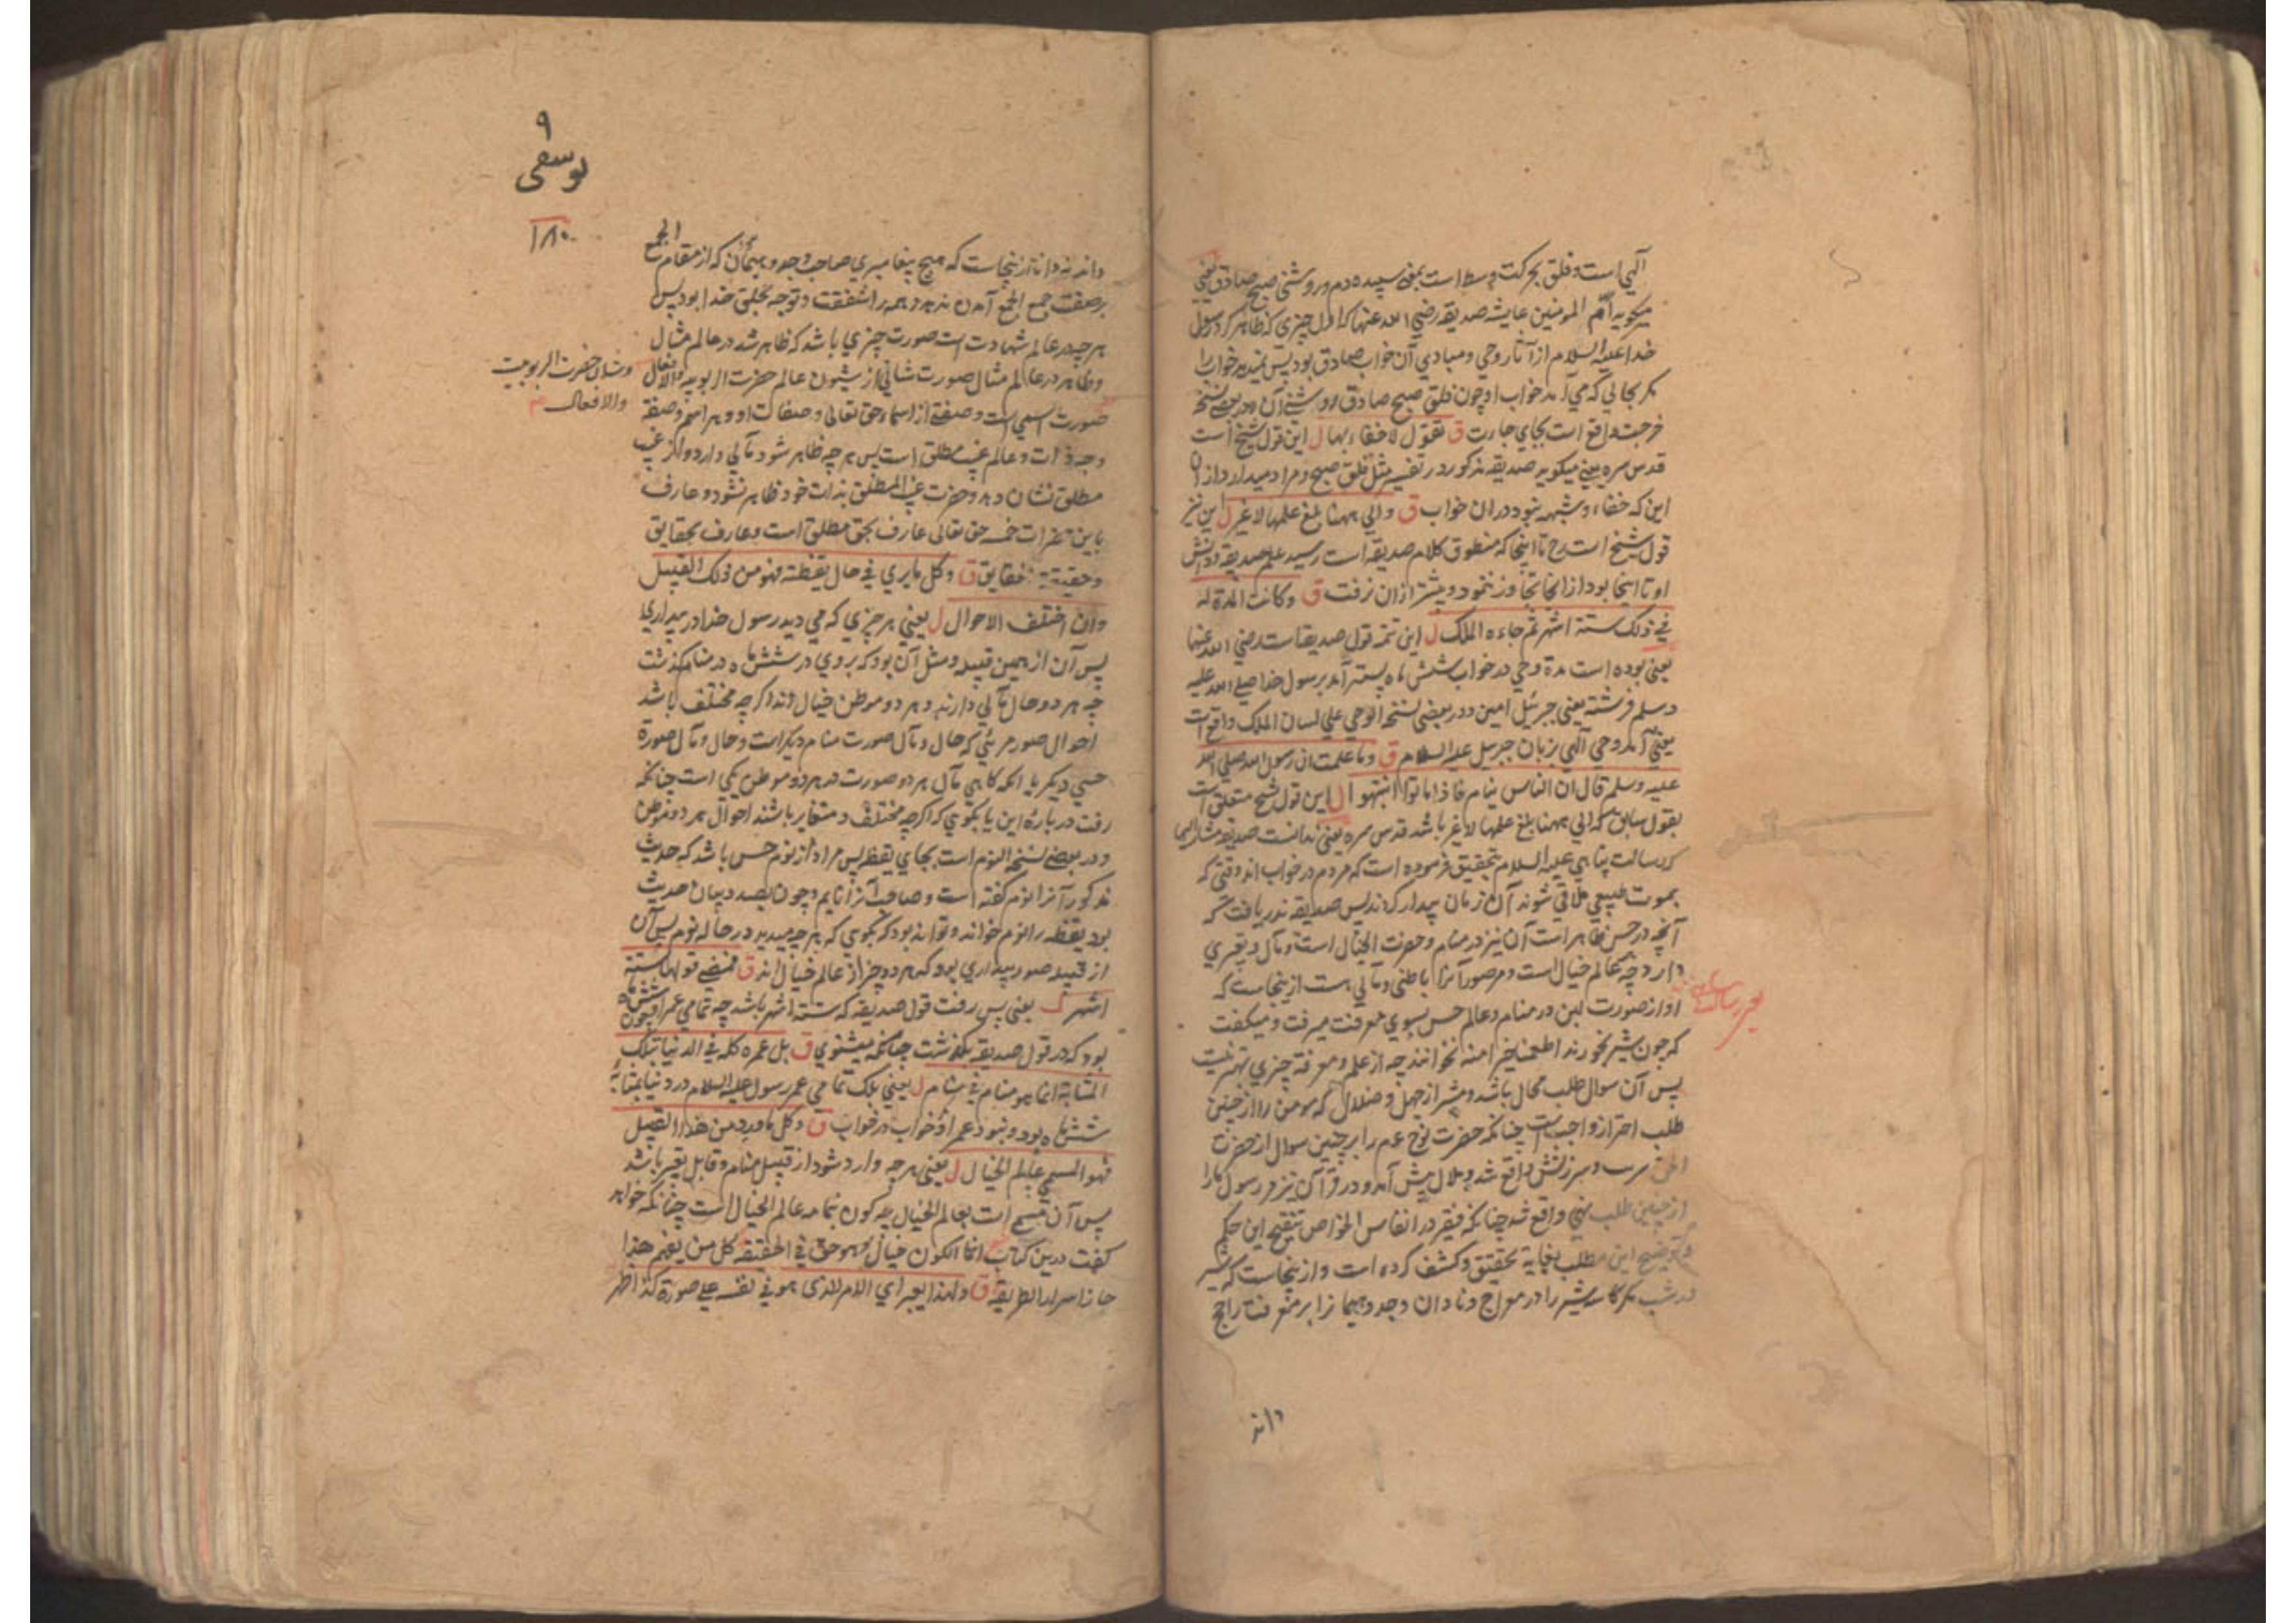 آلهی است و فلق بحرکت وسط است بمعنی سپیده دم و روشنی صبح صادق یعنی
میکوید ام المومنین عایشه صدیقه رضی الله عنها که اول چیزی که ظاهر کرد رسول
خدا علیه السلام از آثار وحی و مبادی آن خواب صادق بود پس نمیدید خواب را
مکر بحالی که می آمد خواب او چون فلق صبح صادق و روشنی آن و در بعضی نسخه
خرجت واقع است بجای جاءت ق تقول لا خفاء بها ل این قول شیخ است
قدس سره یعنی میکوید صدیقه مذکور در تفسیر مثل فلق صبح و مراد میدارد از ان
این که خفاء و شبهه نبود در ان خواب ق والی ههنا بلغ علمها لا غیر ل این نیز
قول شیخ است رح تا اینجا که منطوق کلام صدیقه است رسید علم صدیقه و دانش
او تا اینجا بود از انجا تجاوز ننمود و بیشتر از ان نرفت ق وکانت المدة له
فی ذلک ستة اشهر ثم جاءه الملک ل این تتمه قول صدیقه است رضی الله عنها
یعنی بوده است مدة وحی در خواب شش ماه پستر آمد بر رسول خدا صلی الله علیه
وسلم فرشته یعنی جبرئیل امین و در بعضی نسخه الوحی علی لسان الملک واقع است
یعنی آمد وحی آلهی بزبان جبرئیل علیه السلام ق وما علمت ان رسول الله صلی الله
علیه وسلم قال ان الناس نیام فاذا ماتوا انتبهوا ل این قول شیخ متعلق است
بقول سابق که الی ههنا بلغ علمها لا غیر باشد قدس سره یعنی ندانست صدیقه مشار الیها
که رسالت پناهی علیه السلام بتحقیق فرموده است که مردم در خواب اند وقتی که
بموت طبیعی ملاقی شوند آن زمان بیدار کردند پس صدیقه ندریافت که
آنچه در حس ظاهر است آن نیز در منام و حضرت الخیال است و مآل و تعبیری
دارد چه عالم خیال است و مر صور آنرا باطنی و مآلی هست از ینجاست که
او از صورت لبن در منام و عالم حس بسوی معرفت میرفت و میکفت
که چون شیر بخورند اطعمنا خیرا منه نخوانند چه از علم و معرفة چیزی بهتر نیست
پس آن سوال طلب محال باشد و مشعر از جهل و ضلال که مومن را از چنین
طلب احتراز واجب است چنانکه حضرت نوح عم را بر چنین سوال از حضرت
سرزنش واقع شد و ملال پیش آمد و در قرآن نیز مر رسول ما را
از چنین طلب نهی واقع شد چنانکه فقیر در انفاس الخواص تنقیح این حکم
و توضیح این مطلب بغایة تحقیق و کشف کرده است و از ینجاست که شیر
را در معراج و نادان وجد و هیمان را بر معرفت راجح
داند
۹
یوسفی
۱۸۰
داند نه دانا از ینجاست که هیچ پیغامبری صاحب وجد و هیمان که از مقام الجمع
بر صفت جمع الجمع آمدن ندهد و همه را شفقت و توجه بخلق خدا بود پس
هر چه در عالم شهادت است صورت چیزی باشد که ظاهر شد در عالم مثال
و ظاهر در عالم مثال صورت شانی از شیون عالم حضرت الربوبیة والافعال
و شان حضرت الربوبیت
والافعال
صورت اسمی است و صفتی از اسماء حق تعالی و صفات او و هر اسم و صفة
وجه ذات و عالم غیب مطلق است پس هر چه ظاهر شود مآلی دارد و از غیب
مطلق نشان دهد و حضرت غیب المطلق بذات خود ظاهر نشود و عارف
باین حضرات خمسه حق تعالی عارف بحق مطلق است و عارف بحقایق
و حقیقة حقایق ق وکل ما یری فی حال یقظته فهو من ذلک القبیل
وان اختلف الاحوال ل یعنی هر چیزی که می دید رسول خدا در بیداری
پس آن از همین قبیله و مثل آن بود که بروی در شش ماه در منام کذشت
چه هر دو حال مآلی دارند و هر دو موطن خیال اند اکرچه مختلف باشد
احوال صور مرئی که حال و مآل صورت منام دیکر است و حال و مآل صورة
حسی دیکر یا انکه کاهی مآل هر دو صورت در هر دو موطن یکی است چنانکه
رفت در باره این یا بکوی که اکرچه مختلف و متغایر باشند احوال هر دو موطن
و در بعضی نسخه النوم است بجای یقظه پس مراد از نوم حس باشد که حدیث
مذکور آنرا نوم کفته است و صاحب آنرا نایم و چون بصدد بیان حدیث
بود یقظه را نوم خواند و تواند بود که بکوی که هر چه میدید در حاله نوم پس آن
از قبیله صور بیداری بود که هر دو چیز از عالم خیال اند ق فمضی قولها ستة
اشهر ل یعنی پس رفت قول صدیقه که ستة اشهر باشد چه تمامی عمر او چون شش ماه
بود که در قول صدیقه بکذشت چنانکه میشنوی ق بل عمره کله فی الدنیا بتلک
المثابة انما هو منام فی منام ل یعنی بلک تمامی عمر رسول علیه السلام در دنیا بمثابه
شش ماه بود و نبود عمر او خواب در خواب ق وکل ما ورد من هذا القبیل
فهو المسمی عالم الخیال ل یعنی هر چه وارد شود از قبیل منام و قابل تعبیر باشد
پس آن مسمی است بعالم الخیال چه کون بتمامه عالم الخیال است چنانکه خواهد
کفت درین کتاب انما الکون خیال وهو حق فی الحقیقه کل من یفهم هذا
حاز اسرار الطریقه ق ولهذا یعبر ای الامر الذی هو فی نفسه علی صورة کذا ظهر